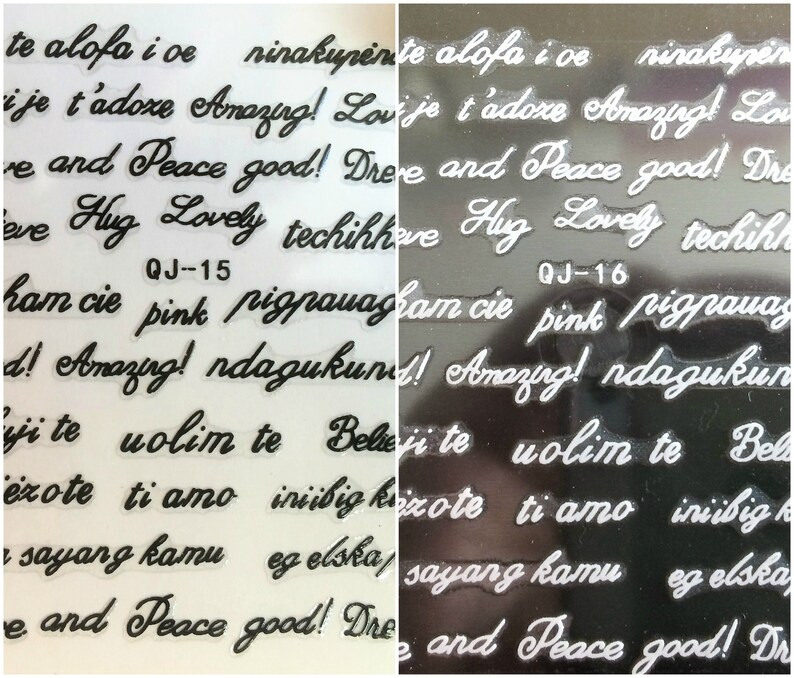 te alofa i oe ninakupena
i je t'adoze Amazing! Lov
ve and Peace good! Dre
eve Hug Lovely techihh
QJ-15
ham cie pink pigpauag
d! Amazing! ndagukund
uji te uolim te Belie
iezote ti amo iniibig k
sayang kamu eg elska
e and Peace good! Dre
te alofa i oe ninakupena
i je t'adoze Amazing! Lov
ve and Peace good! Dre
eve Hug Lovely techihh
QJ-16
ham cie pink pigpauag
d! Amazing! ndagukun
uji te uolim te Beli
iezote ti amo iniibig k
sayang kamu eg elska
e and Peace good! Dre